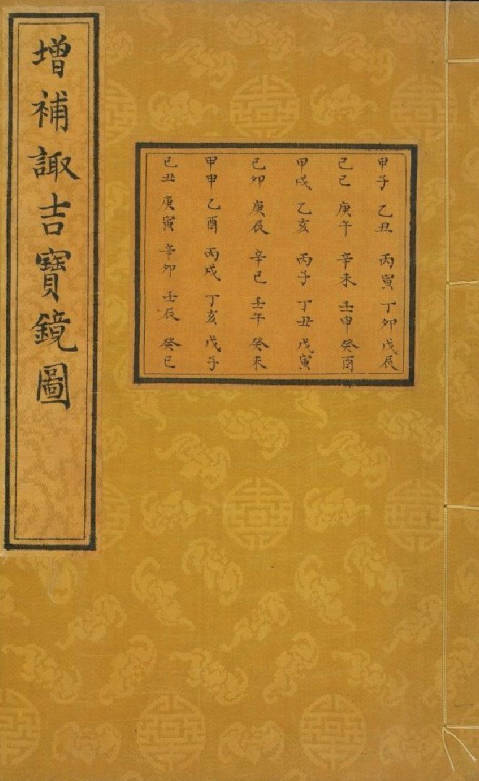 增補諏吉寶鏡圖
甲子 乙丑 丙寅 丁卯 戊辰
己巳 庚午 辛未 壬申 癸酉
甲戌 乙亥 丙子 丁丑 戊寅
己卯 庚辰 辛巳 壬午 癸未
甲申 乙酉 丙戌 丁亥 戊子
己丑 庚寅 辛卯 壬辰 癸巳